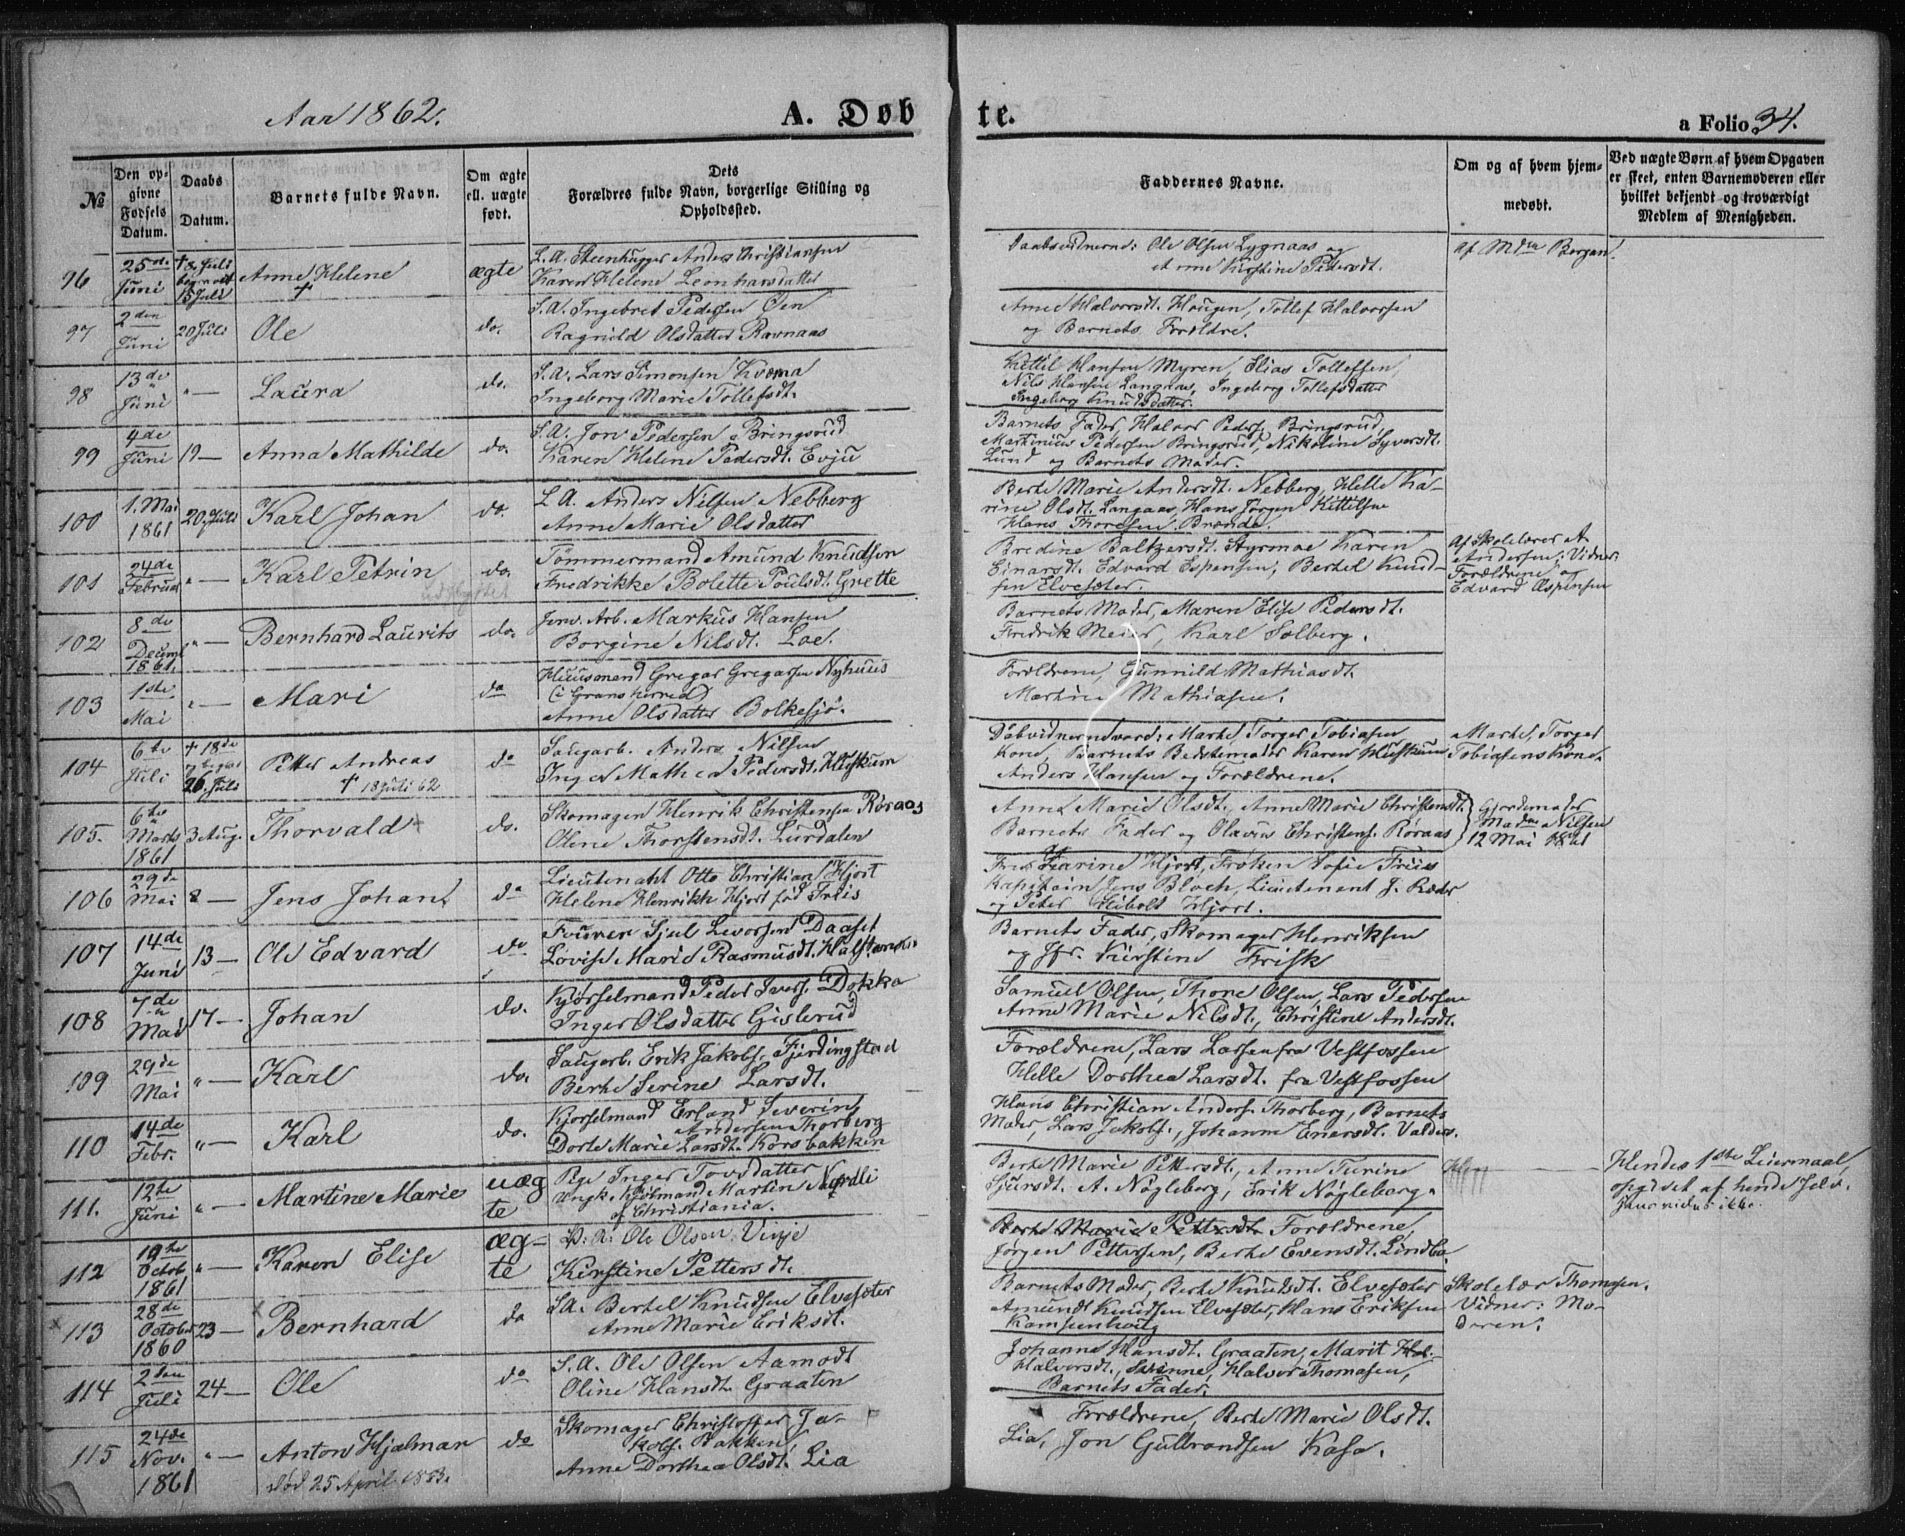 Aar 1862.
A. Døbte.
a Folio 34.
№
Den opgivne Fødsels Datum.
Daabs Datum.
Barnets fulde Navn.
Om ægte ell. uægte født.
Dets Forældres fulde Navn, borgerlige Stilling og Opholdssted.
Faddernes Navne.
Om og af hvem hjemmedøbt.
Ved uægte Børn af hvem Opgaven er skeet, enten Barnemoderen eller hvilket bekjendt og troværdigt Medlem af Menigheden.
96
25de Juni
† 8 Juli begravet 15 Juli
Anne Helene †
ægte
S. A. Steenhugger Anders Christiansen
Karen Helene Leonharsdatter
Daabsvidnerne: Ole Olsen Lygnaas og
Anne Kirstine Pedersdt.
Af Mdm Bergan.
97
2den Juni
20 Juli
Ole
do.
S. A. Ingebret Pedersen Øen
Ragnild Olsdatter Ravnaas
Anne Halvorsdt. Haugen, Tollef Halvorsen
og Barnets Forældre.
98
13de Juni
"—
Laura
do.
S. A. Lars Simonsen Kværna
Ingeborg Marie Tollefsdt.
Kittil Hansen Myren, Elias Tollefsen,
Nils Hansen Langaas, Ingeborg Tollefsdatter
Ingeborg Knudsdatter.
99
4de Juni
19—
Anna Mathilde
do.
S. A. Jon Pedersen Bringsrud
Karen Helene Pedersdt. Evju
Barnets Fader, Halvor Peders. Bringsrud,
Martinius Pedersen Bringsrud, Nikoline Syversdt.
Lund og Barnets Moder.
100
1. Mai 1861
20. Juli
Karl Johan
do.
L. A. Anders Nilsen Nebberg
Anne Marie Olsdatter
Berte Marie Andersdt. Nebberg, Helle Ka-
rine Olsdt. Langaas, Hans Jörgen Kittilsen
Hans Thoresen Brænde.
101
24de Februar
"—
Karl Petrin
do.
Tömmermand Amund Knudsen
Fredrikke Bolette Poulsdt. Grette
Bredine Baltzersdt. Styrmoe Karen
Einarsdt. Edvard Espensen, Bertel Knud-
sen Elvesæter.
Af Skolelærer A.
Andersen; Vidner:
Forældrene og
Edvard Espensen
102
8de Decemb 1861
"—
Bernhard Laurits
do.
Jernv. Arb. Markus Hansen
Borgine Nilsdt. Loe.
Barnets Moder, Maren Elise Pedersdt.
Fredrik Meier, Karl Solberg.
103
1ste Mai
"—
Mari
do
Huusmand Gregar Gregarsen Nyhuus
(i Gransherred)
Anne Olsdatter Bolkesjö.
Forældrene, Gunnild Mathiasdt.
Martin Mathiasen.
104
6te Juli
† 18de og begr 26. Juli
Petter Andreas
† 18 Juli 62
do
Saugarb. Anders Nilsen
Inger Mathea Pedersdt. Huskum
Döbvidnerne vare: Marte Torger Tobiasen
Kone, Barnets Bedstemoder Karen Huskum
Anders Hansen og Forældrene.
Marte, Torger
Tobiasens Kone.
105.
6te Marts 1861
3 Aug.
Thorvald
do.
Skomager Henrik Christensen Röraas
Olene Thorstensdt. Lurdalen
Anne Marie Olsdt., Anne Marie Christensdt.
Barnets Fader og Olavus Christens. Röraas
Gjordemoder
Madme Nilsen
12 Mai 1861
106
29de Mai
8
Jens Johan
do
Lieutenant Otto Christian Hjort
Helene Henrikke Hjort född Friis
Fru Karine Hjort, Fröken Sofie Friis
Kapitain Jens Bloch, Lieutenant J. Ræder
og Peter Hibolt Hjort.
107
14de Juni
13—
Ole Edvard
do
Snuren Sjul Levorsen Daaset
Lovise Marie Rasmusdt. Halstensen
Barnets Fader, Skomager Henriksen
og Jfr. Kirstine Frisk
108
7de Mai
17—
Johan
do.
Kjörselmand Peder Ivers. Dokka
Inger Olsdatter Gislerud
Samuel Olsen, Thone Olsen, Lars Pedersen
Anne Marie Nilsdt., Christine Andersdt.
109
29de Mai
"—
Karl
do.
Saugarb. Erik Jakobs. Fjerdingstad
Berte Serine Larsdt.
Forældrene, Lars Larsen fra Vestfossen
Helle Dorthea Larsdt. fra Vestfossen
110
14de Febr.
"—
Karl
do.
Kjörselmand Erland Severin
Andersen Thorberg
Dorte Marie Larsdt. Korsbakken
Hans Christian Anders. Thorberg, Barnets
Moder, Lars Jakobs., Johanne Enersdt. Valders.
111.
12te Juni
"—
Martine Marie
uægte
Pige Inger Tovsdatter
Ungk. Martin Nordli
af Christiania.
Berte Marie Pettersdt., Anne Turine
Sjursdt. A. Nögleberg, Erik Nögleberg.
Hendes 1ste Leiermaal,
opgivet af hende selv.
112
19te Octob 1861
"—
Karen Elise
ægte
S. A. Ole Olsen Vinje
Kirstine Pettersdt.
Berte Marie Pettersdt. Forældrene,
Jörgen Pettersen, Berte Evensdt. Lindbo
113
28de October 1860
23—
Bernhard
do
S. A. Bertel Knudsen Elvesæter
Anne Marie Eriksdt.
Barnets Moder, Berte Knudsdt. Elvesæter
Amundt Knudsen Elvesæter, Hans Eriksen
Kamsenhoug
Skolelær Thomasen.
Vidner: Mo-
deren.
114
2den Juli
24—
Ole
do
S. A. Ole Olsen Aamodt
Oline Hansdt. Graaten
Johanne Hansdt. Graaten, Marit Hal.
Halvorsdt., Halvor Thomasen,
Barnets Fader.
115
24de Nov. 1861
"—
Anton Hjalmar
död 25 April 1883.
do
Skomager Christoffer Ja-
kobs. Bakken
Anne Dorthea Olsdt. Lia
Forældrene, Berte Marie Olsdt.
Lia, Jon Gulbrandsen Kasa.